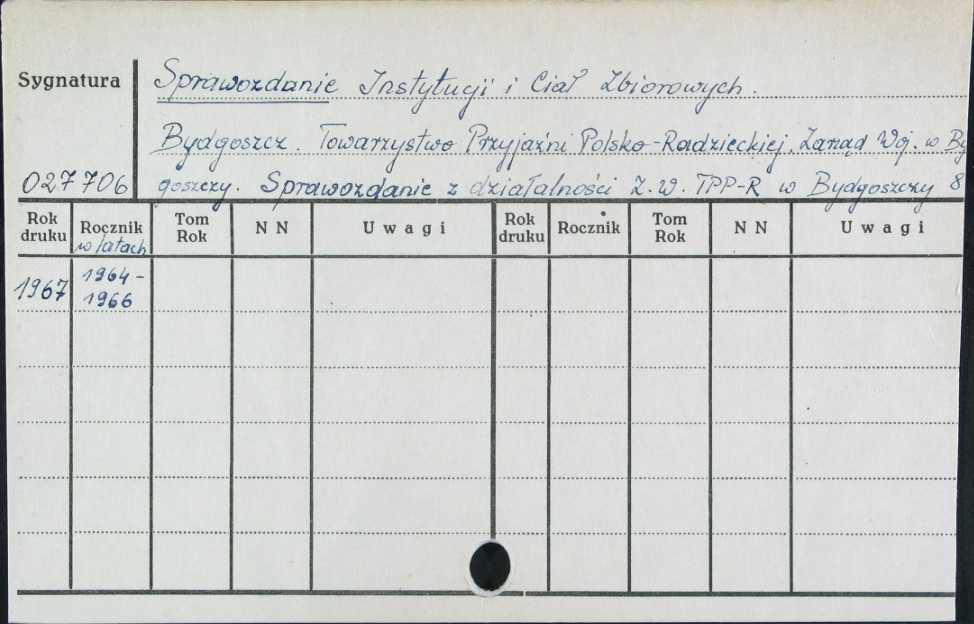 Sygnatura
Sprawozdanie Instytucji i Ciał Zbiorowych.
Bydgoszcz. Towarzystwo Przyjaźni Polsko-Radzieckiej. Zarząd Woj. w By
027706 goszczy. Sprawozdanie z działalności Z.W. TPP-R w Bydgoszczy 8
Rok druku Rocznik w latach Tom Rok NN Uwagi Rok druku Rocznik Tom Rok NN Uwagi
1967 1964-1966